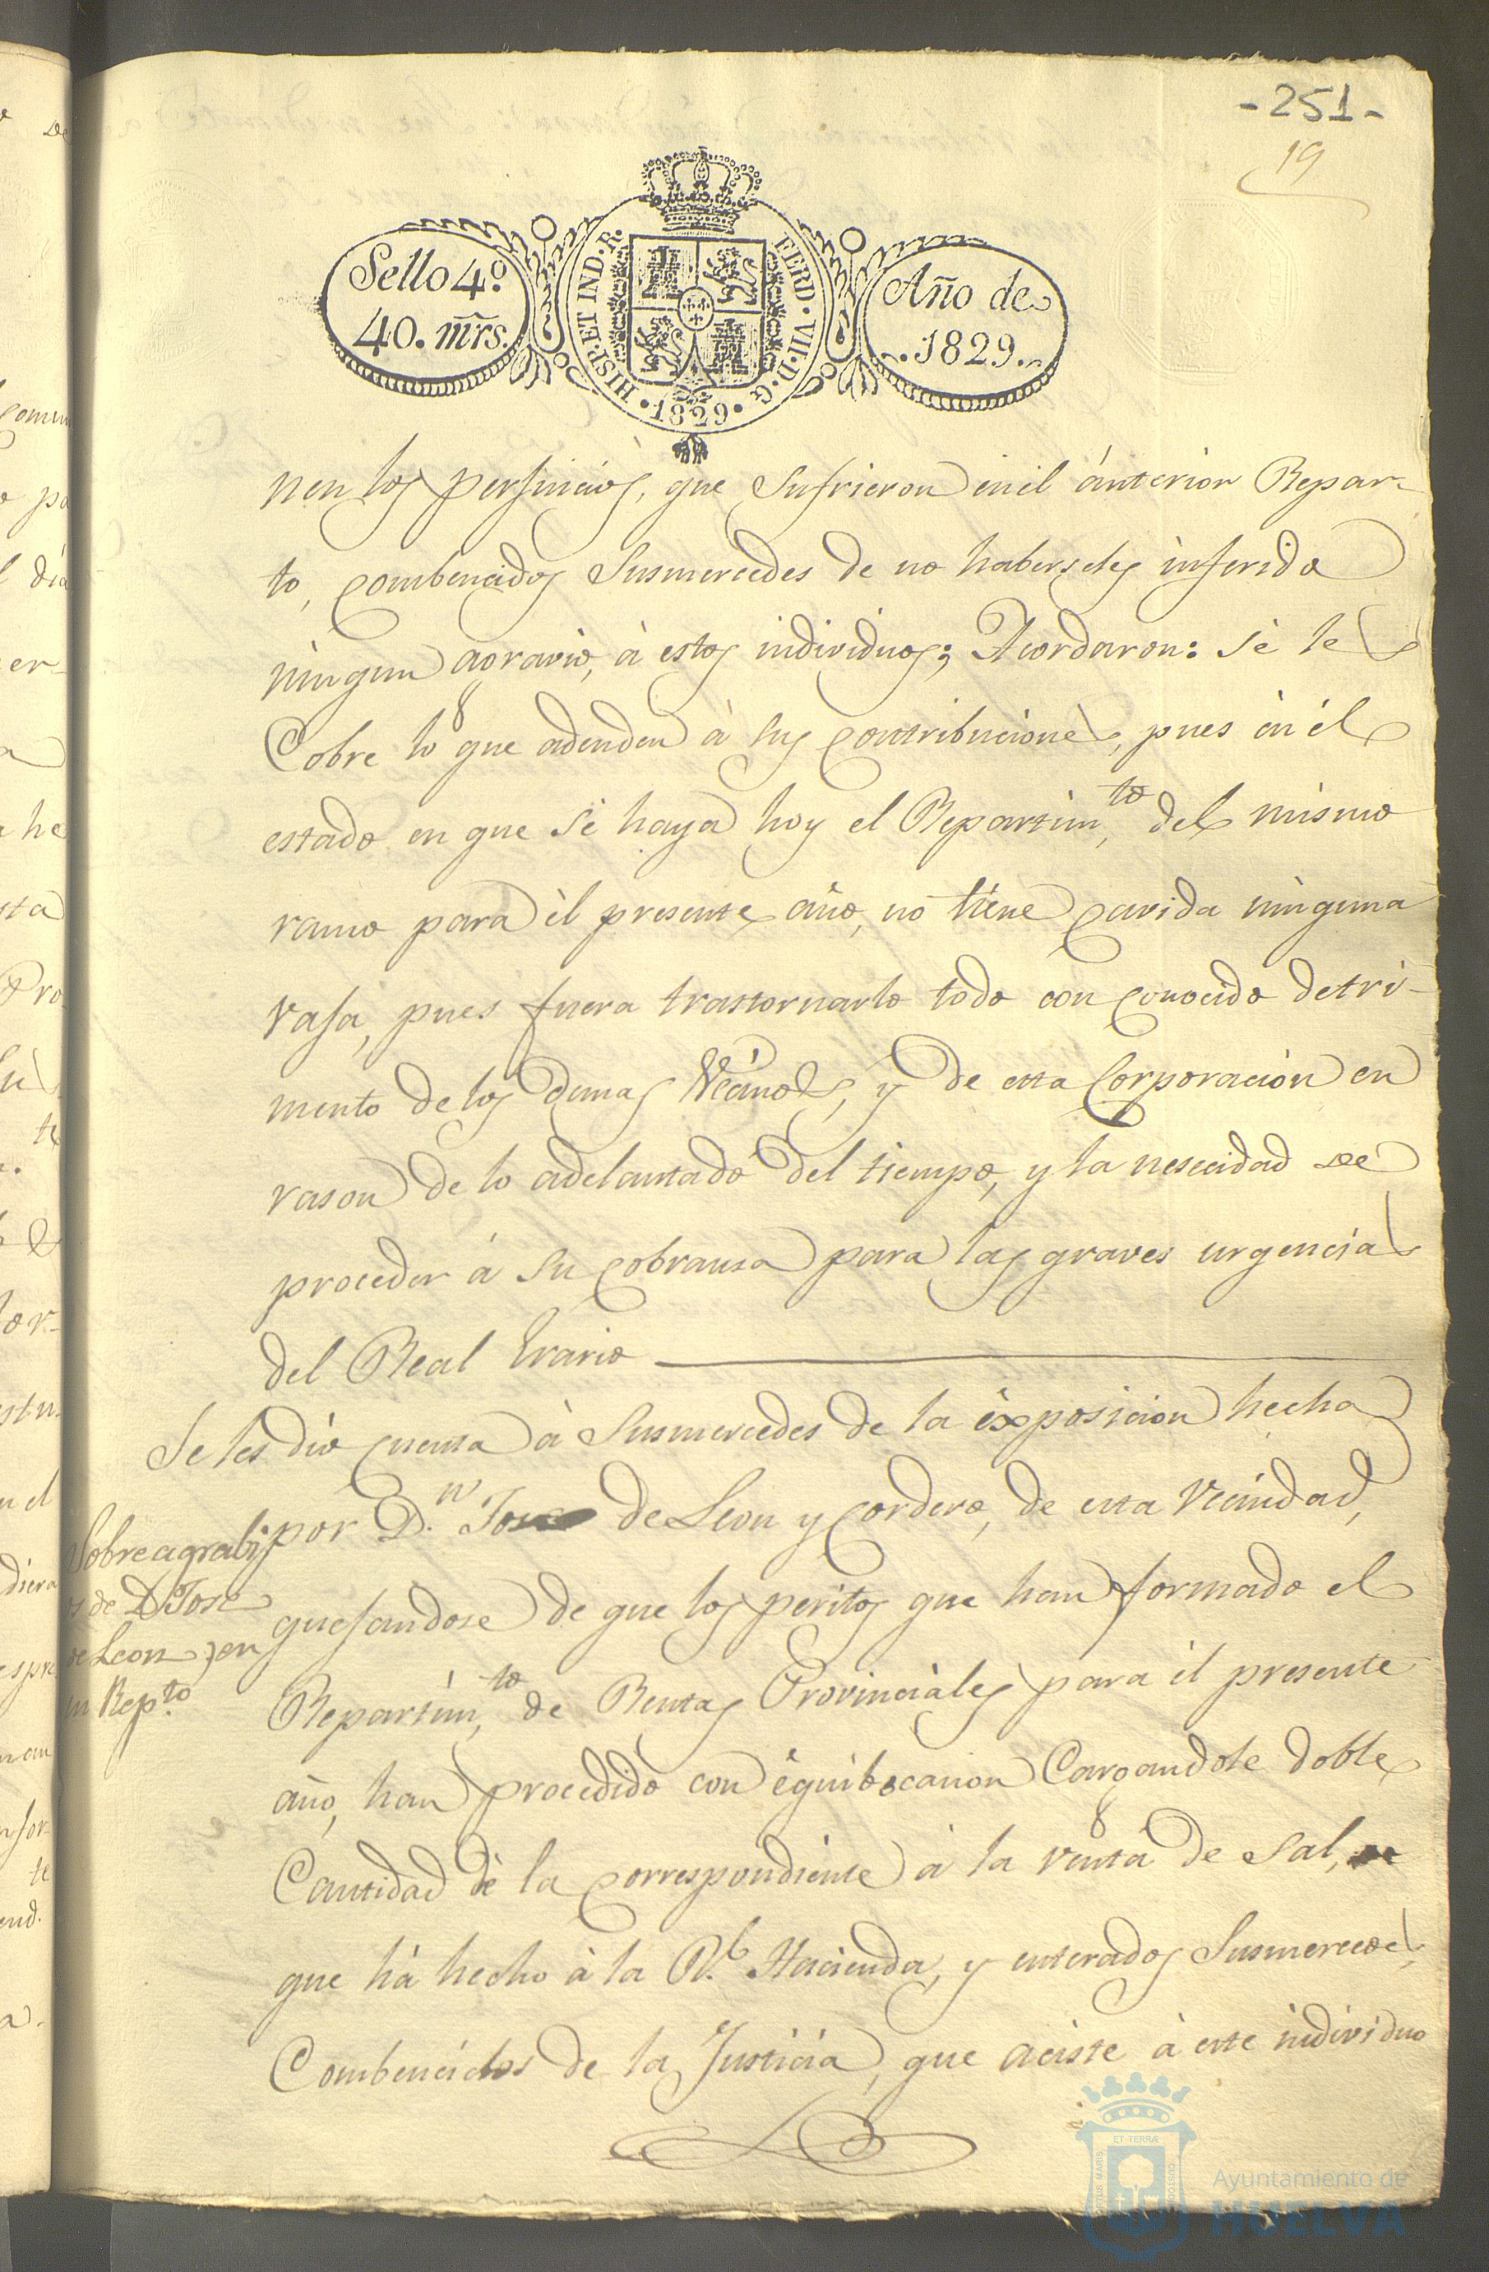 -251-
19
Sello 4º
40. mrs.
HISP. ET IND. R.
FERD. VII. D. G.
1829
Año de
1829.
nen los perjuicios, que sufrieron en el ánterior Repar-
to, combencidos Susmercedes de no haberseles inferido
ningun agravio, à estos individuos; Acordaron: sè le
Cobre lo que adeuden à sus contribuciones, pues èn èl
estado en que sè haya hoy el Repartim,to del mismo
ramo para èl presente año, no tiene cavida ninguna
vaja, pues fuera trastornarlo todo con conocido detri-
mento de los demas Vecinos, y de esta Corporación en
rason de lo adelantado del tiempo, y la nesecidad de
proceder à su cobransa para las graves urgencias
del Real Erario
Se les dio cuenta à Susmercedes de la èxposicion hecha
por D.n Jose de Leon y Cordero, de esta Vecindad,
quejandose de que los peritos que han formado el
Repartim,to de Rentas Provinciales para èl presente
año, han procedido con èquibocacion Cargandole doble
Cantidad dè la correspondiente à la venta de sal,
que hà hecho à la Rl. Hacienda, y enterados Susmercedes,
Combencidos de la Justicia, que aciste à este individuo
Sobre agrabi
os de D Jose
de Leon en
un Rep.to
ET TERRÆ
Ayuntamiento de
HUELVA